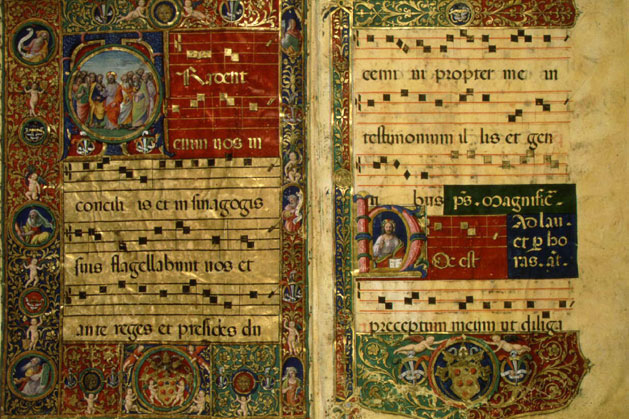 TRadent
enim uos in
concili is et in sinagogis
suis flagellabunt uos et
ante reges et presides du
cemi ni propter me in
testimonium il lis et gen
ti bus ps. Magnific̄
Ad lau
et ꝑ ho
ras. an̄.
HOc est
preceptum meum ut diliga